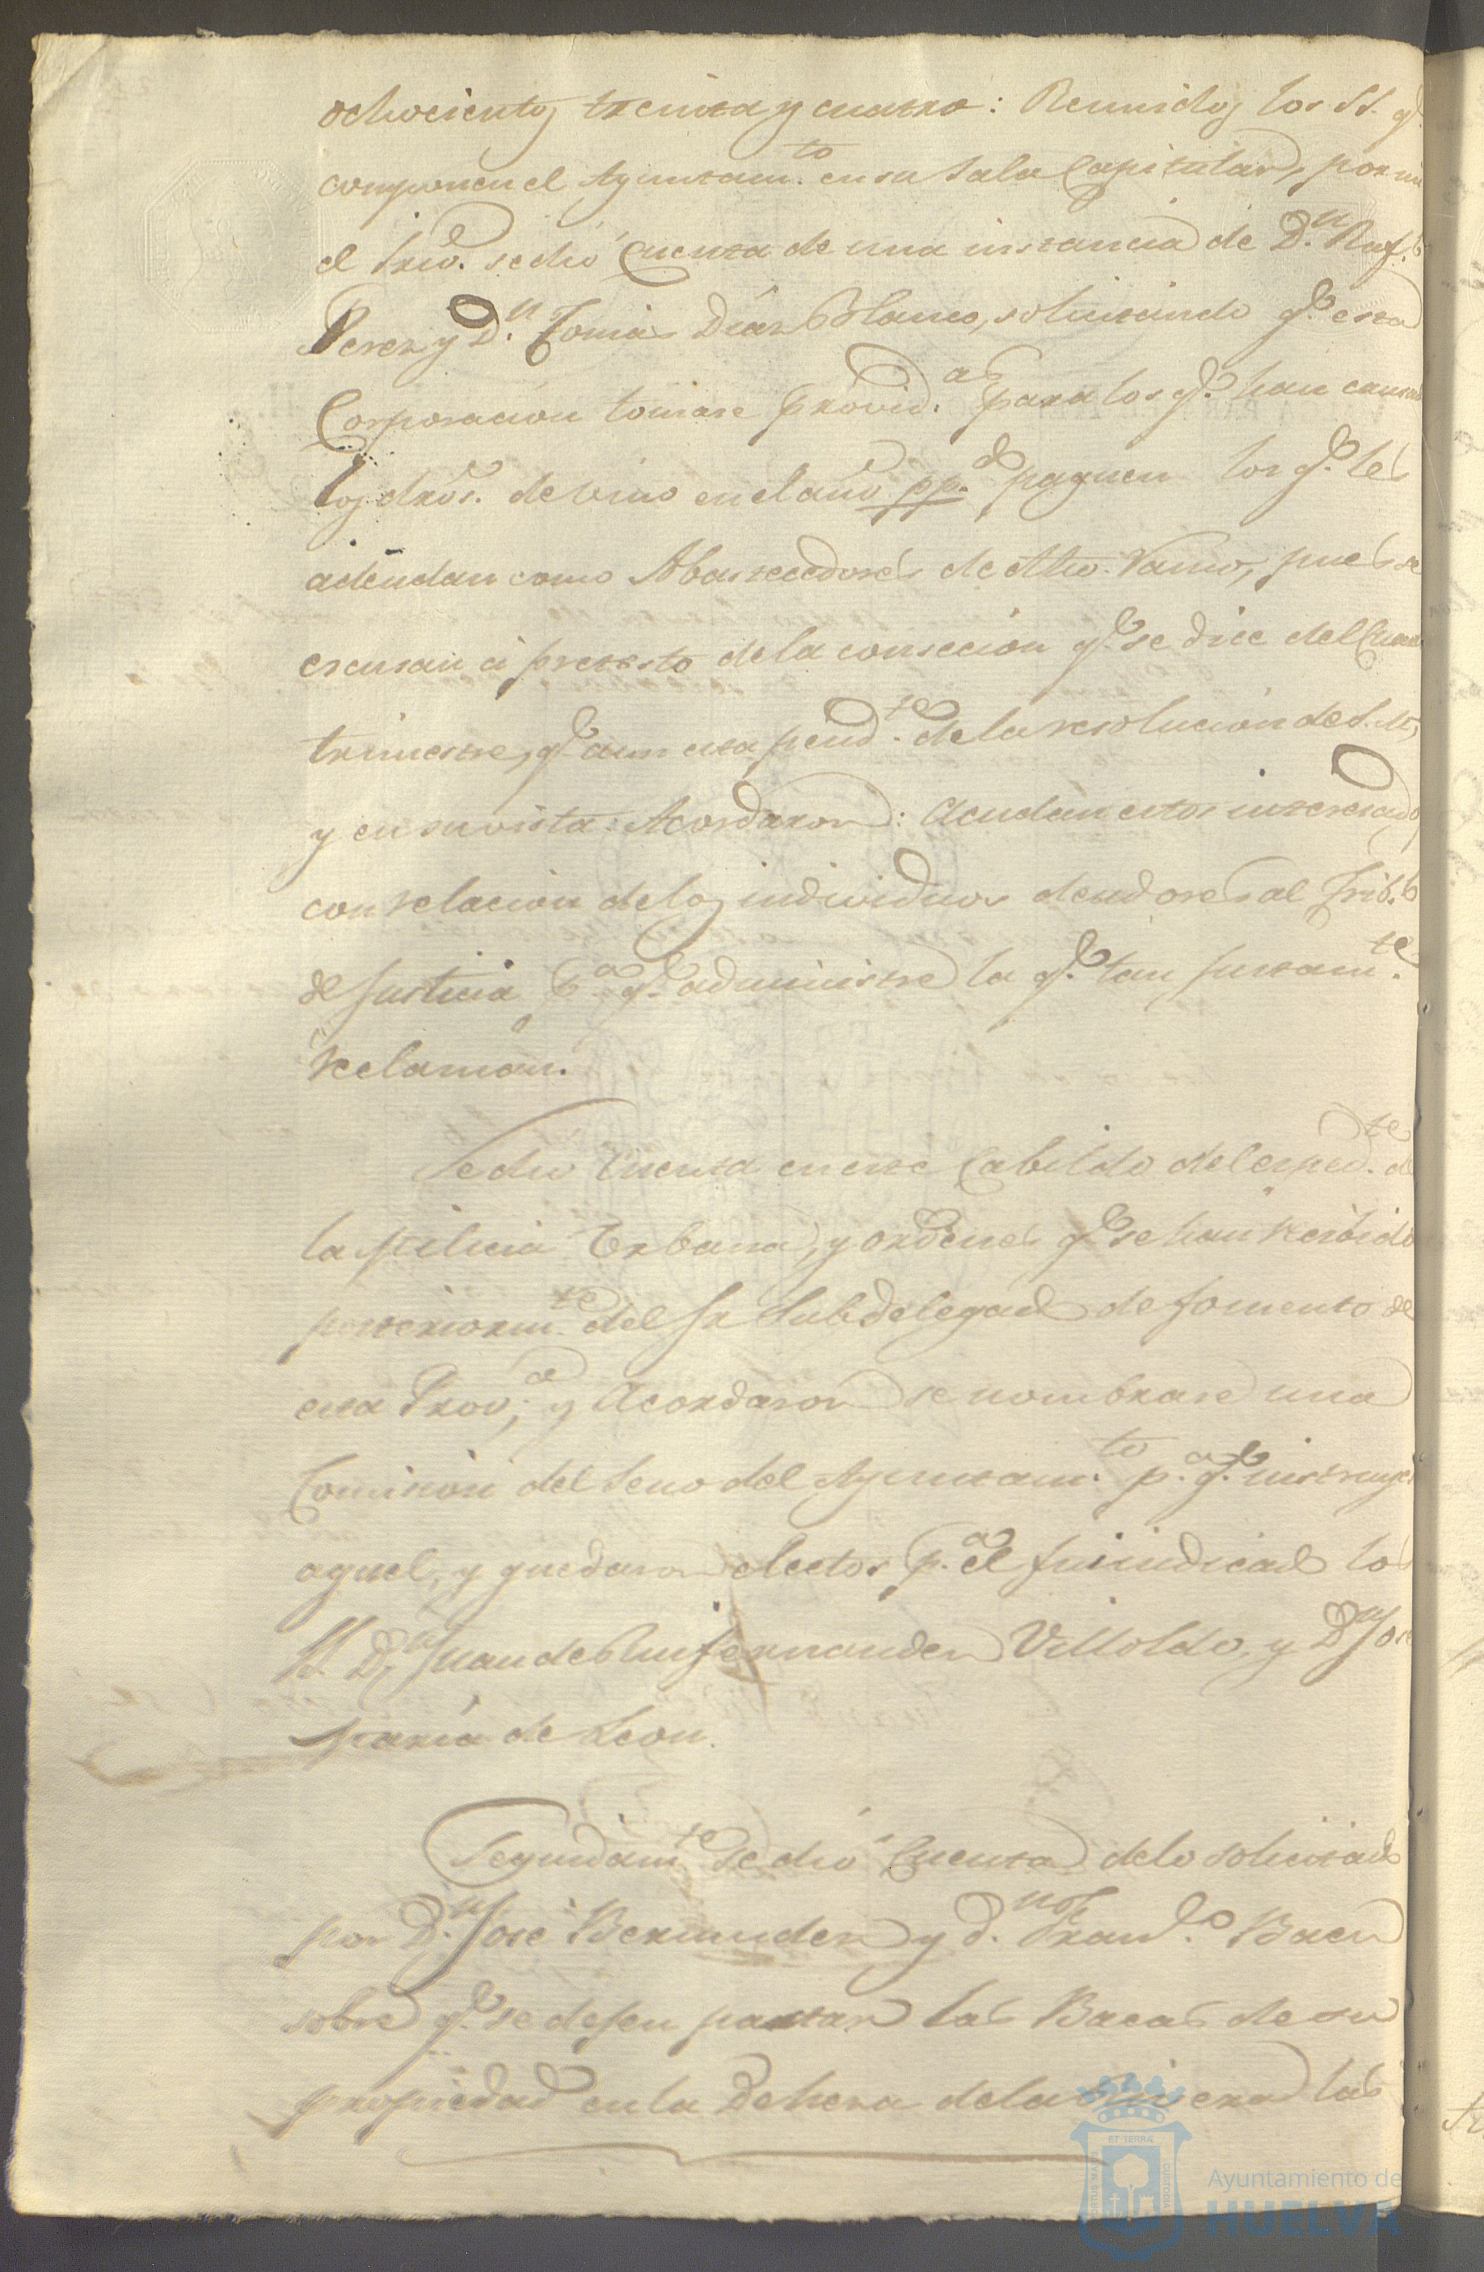 ochocientos treinta y cuatro: Reunidos los SS. q.e
componen el Ayuntam.to en su Sala Capitular, por mi
el Srio. se dió Cuenta de una instancia de D.n Raf.l
Perez y D.n Tomas Diaz Blanco, solicitando q.e esta
Corporacion tomase provid.as para los q.e han causado
los dros. de vino en el año pp.do paguen los q.e les
adeudan como Abastecedores de dho. Ramo, pues se
escusan á pretesto de la consecion q.e se dice del Cuarto
trimestre, q.e aun esta pend.te de la resolucion de S.M,
y en su vista: Acordaron: Acudan estos interesados
con relacion de los individuos deudores al Trib.l
de Justicia p.a q.e administre la q.e tan justam.te
reclaman.
Se dió Cuenta en este Cabildo del esped.te de
la Milicia Urbana, y ordenes q.e se han recibido
posteriorm.te del Sr Subdelegado de fomento de
esta Prov.a; y Acordaron se nombrase una
Comision del Seno del Ayuntam.to p.a q.e instruya
aquel, y quedaron electos p.a el fin indicado los
SS. D.n Juan de Luis fernandez Villoldo, y D.n Jose
Maria de Leon.
Segundam.te se dió Cuenta de lo solicitado
por D.n José Bermudez y d. Fran.co Baen
sobre q.e se dejen pastar las Bacas de su
propiedad en la Dehesa de la las
ET TERRÆ
PORTUS MARIS
CUSTODIA
Ayuntamiento de
HUELVA